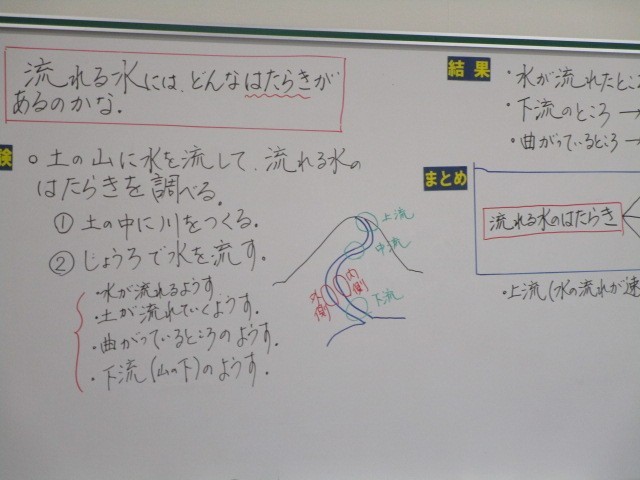 流れる水には、どんなはたらきが
あるのかな.
験
○土の山に水を流して、流れる水の
はたらきを調べる.
①土の中に川をつくる.
②じょうろで水を流す.
・水が流れるようす
・土が流れていくようす.
・曲がっているところのようす.
・下流(山の下)のようす.
上流
中流
内側
外側
下流
結果
・水が流れたところ
・下流のところ→
・曲がっているところ→
まとめ
流れる水のはたらき
・上流(水の流れが速